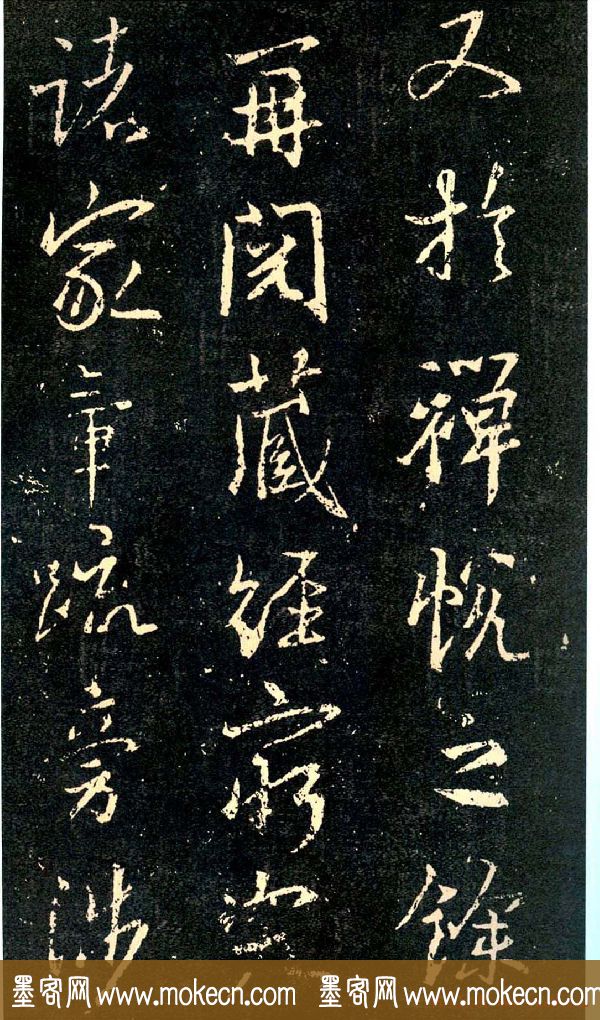 又於禪悅之餘
再閱藏經窮
諸家章疏旁涉
墨客网 www.mokecn.com 墨客网 www.mokecn.com